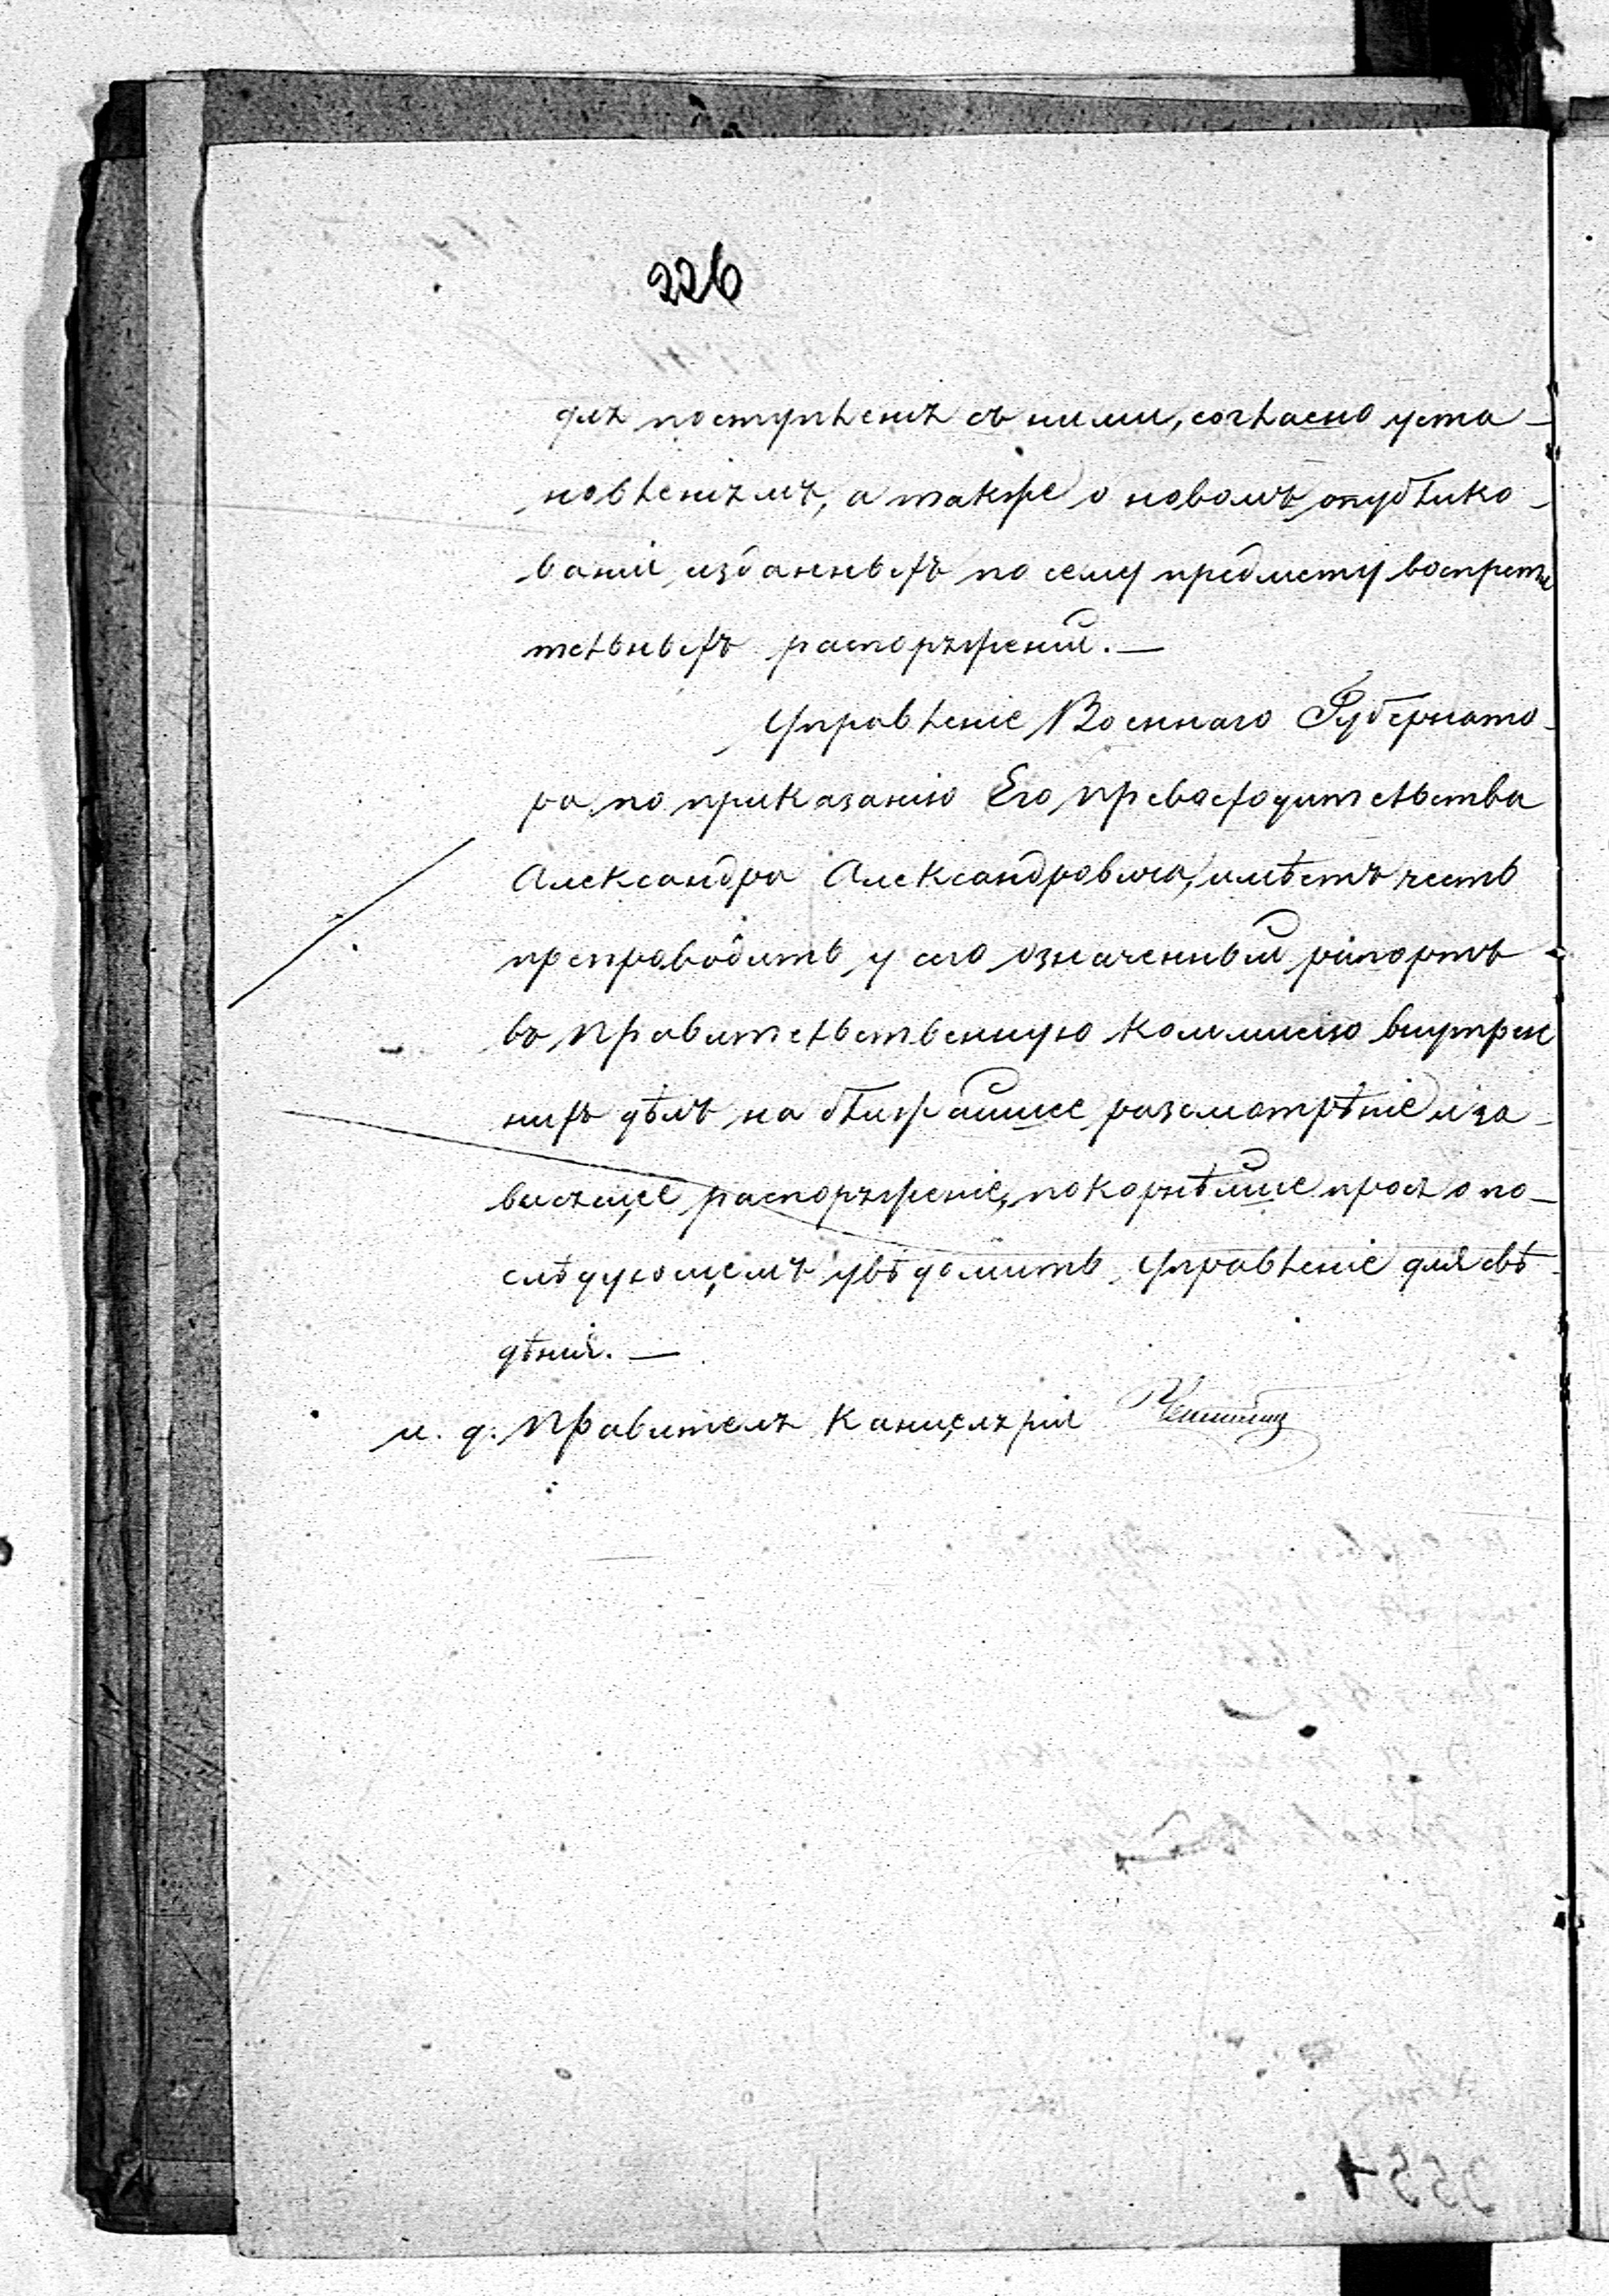 226
для поступленія съ ними, согласно уста-
новленіямъ, а также о новомъ опублико-
ваніи изданныхъ по сему предмету воспрети
тельныхъ распоряженій. —
Управленіе Военнаго Губернато-
ра, по приказанію Его Превосходительства
Александра Александровича, имѣетъ честь
препроводить у сего означенный рапортъ
въ Правительственную Коммисію внутрен
нихъ дѣлъ на ближайшее разсмотрѣніе и за-
висящее распоряженіе, покорнѣйше прося о по-
слѣдующемъ увѣдомить Управленіе для свѣ-
дѣнія. —
и. д. Правителя Канцеляріи